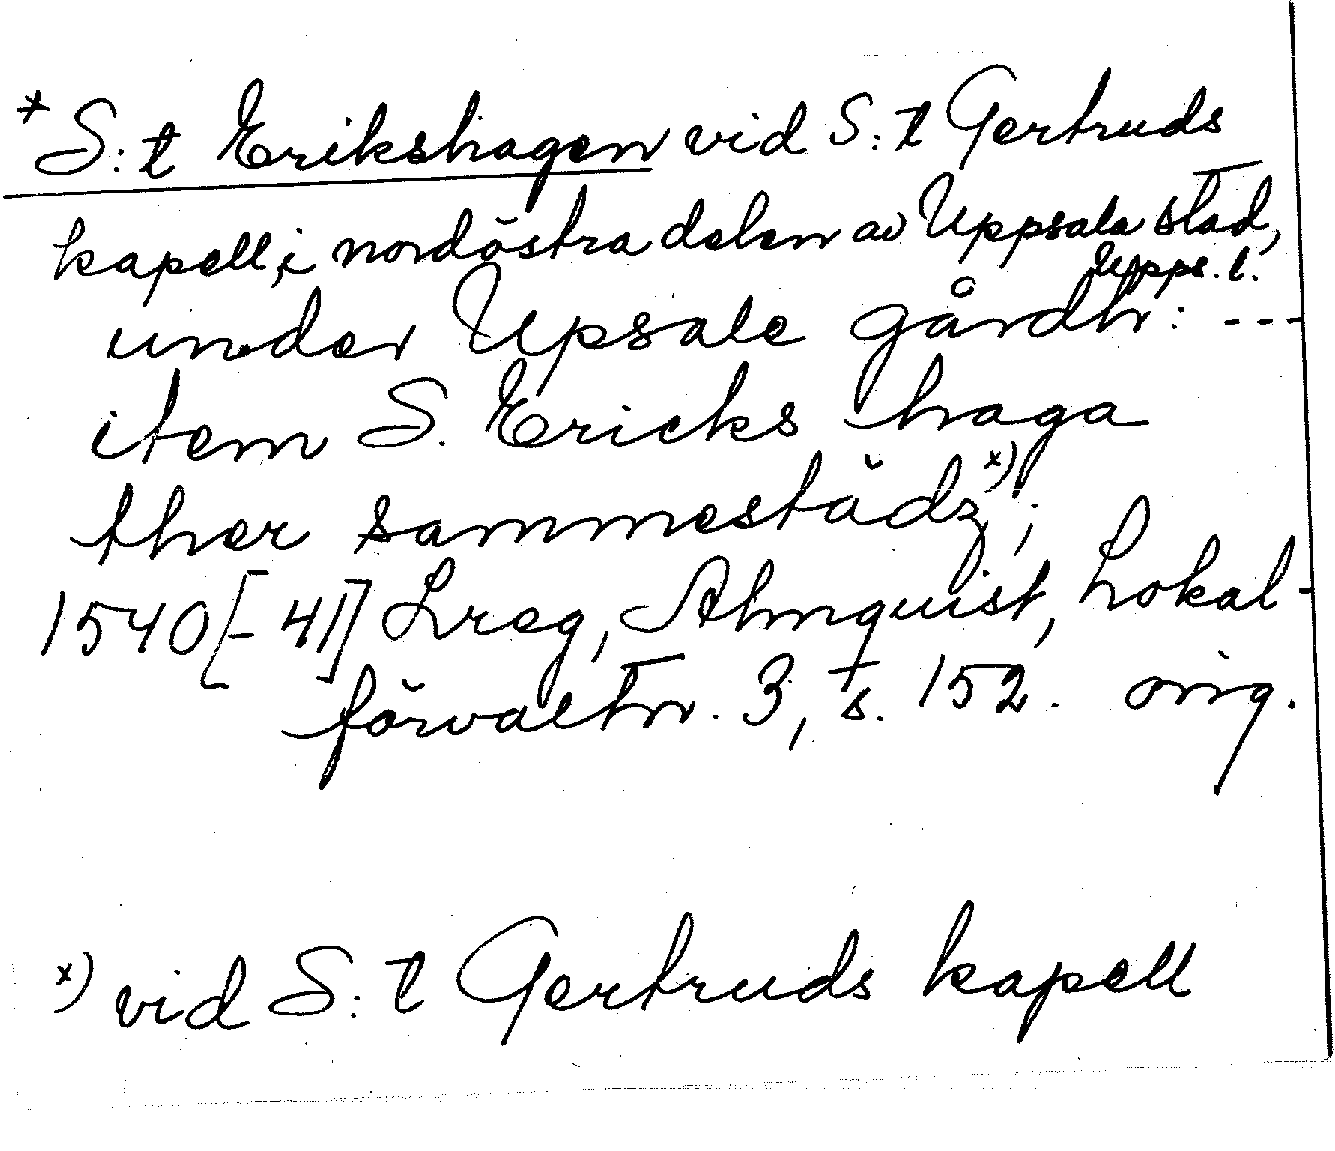 *S:t Erikshagen vid S:t Gertruds
kapell, i nordöstra delen av Uppsala stad,
Upps. l.
under Upsale gårdh: ---
item S. Ericks haga
ther sammestädz x);
1540[-41] Lreg, Almquist, Lokal-
förvaltn. 3, s. 152. orig.
x) vid S:t Gertruds kapell